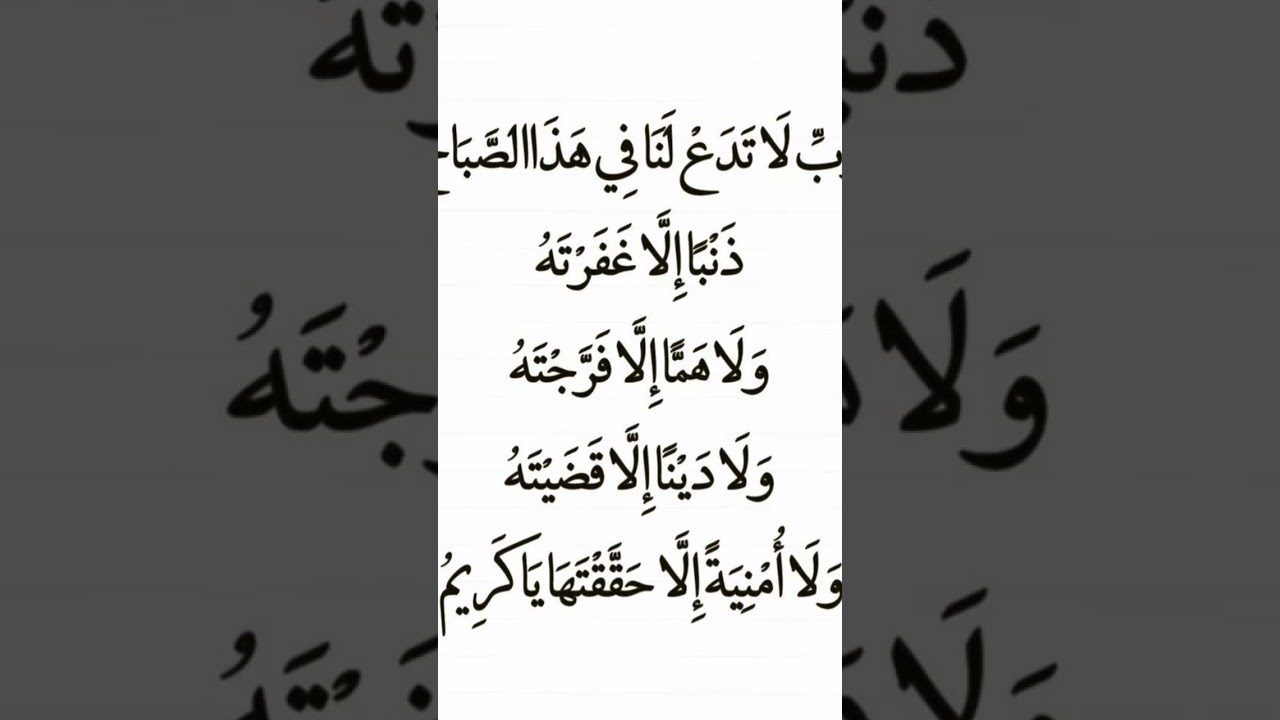 رَبِّ لَا تَدَعْ لَنَا فِي هَذَا الصَّبَاحِ
ذَنْبًا إِلَّا غَفَرْتَهُ
وَلَا هَمًّا إِلَّا فَرَّجْتَهُ
وَلَا دَيْنًا إِلَّا قَضَيْتَهُ
وَلَا أُمْنِيَةً إِلَّا حَقَّقْتَهَا يَا كَرِيمُ